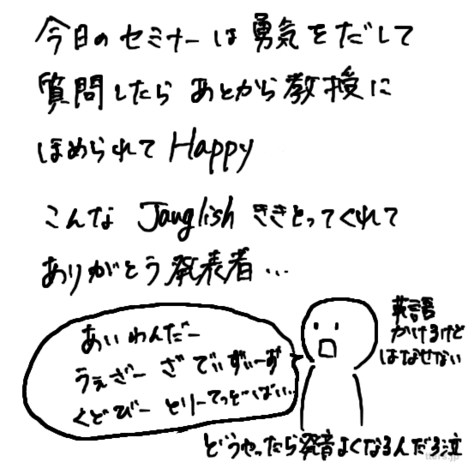 今日のセミナーは勇気をだして
質問したらあとから教授に
ほめられてHappy
こんなJanglishききとってくれて
ありがとう発表者…
あいわんだー
うぇざー ざ でぃずぃーず
くどびー とりーてっどばい…
英語
かけるけど
はなせない
どうやったら発音よくなるんだろ泣